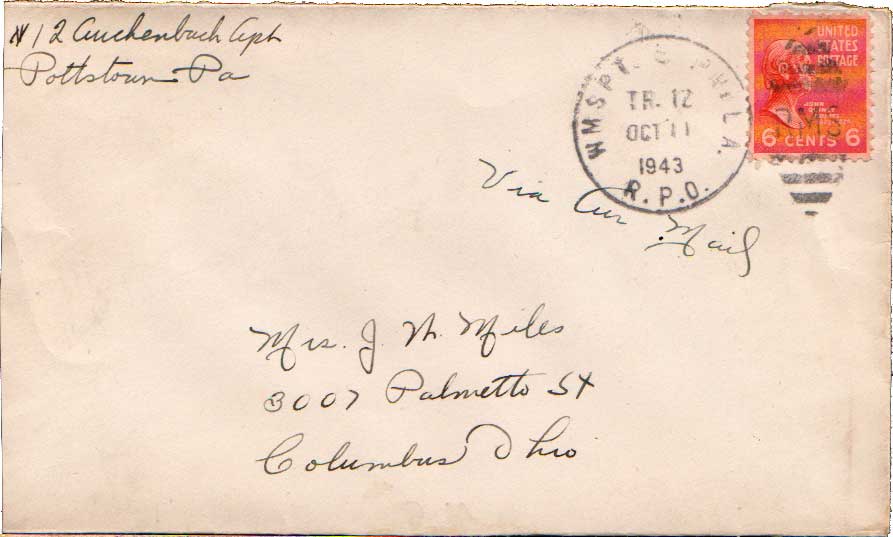 # 12 Auchenbach Apt
Pottstown Pa
WMSPT. & PHILA.
TR. 12
OCT 11
1943
R.P.O.
UNITED
STATES
POSTAGE
JOHN
QUINCY
ADAMS
6 CENTS 6
RMS
Via Air Mail
Mrs. J. M. Miles
3007 Palmetto St
Columbus Ohio